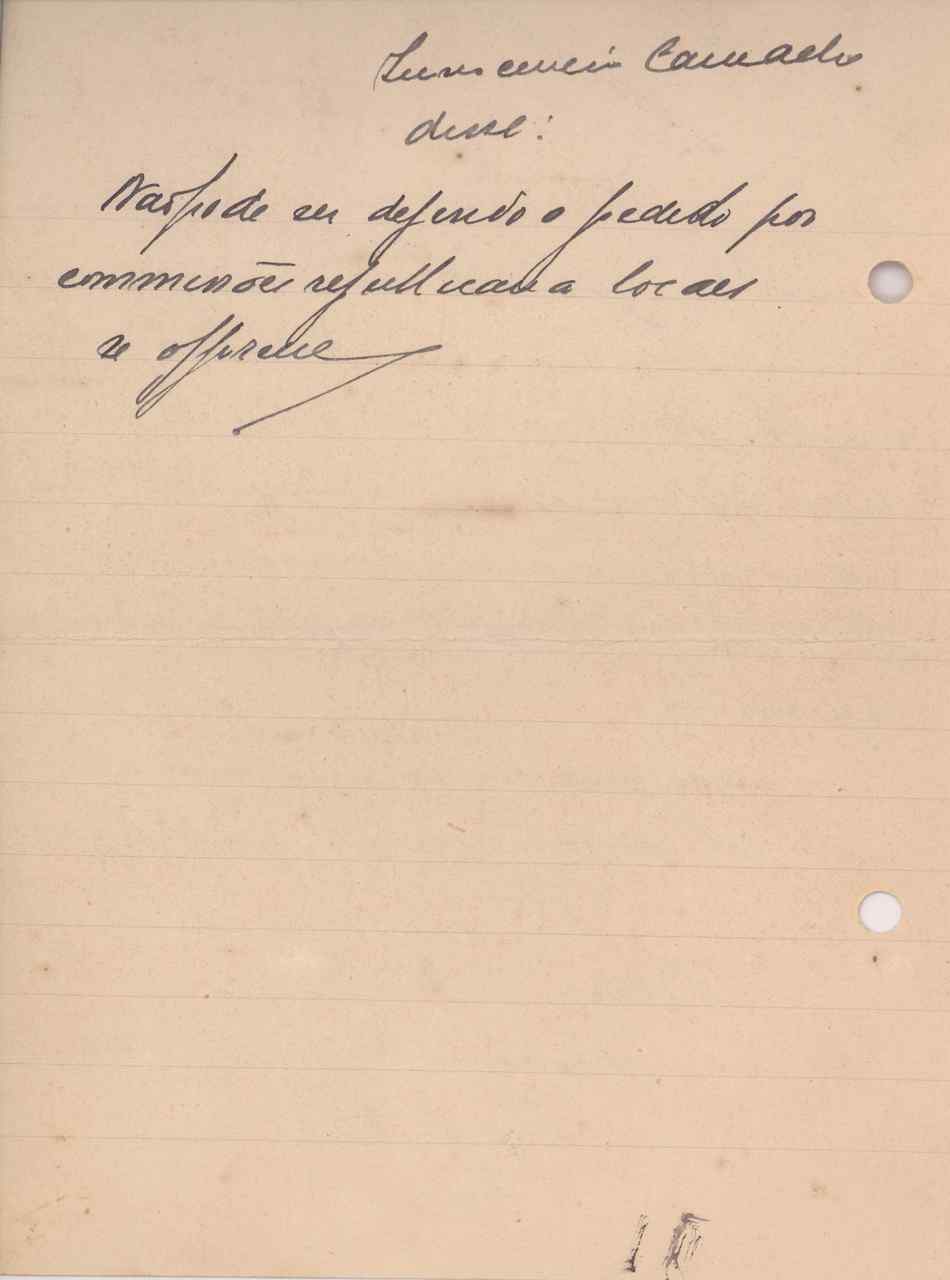 Innocencio Camacho
disse:
Não pode ser deferido o pedido por
commissões republicanas locaes
se opporem